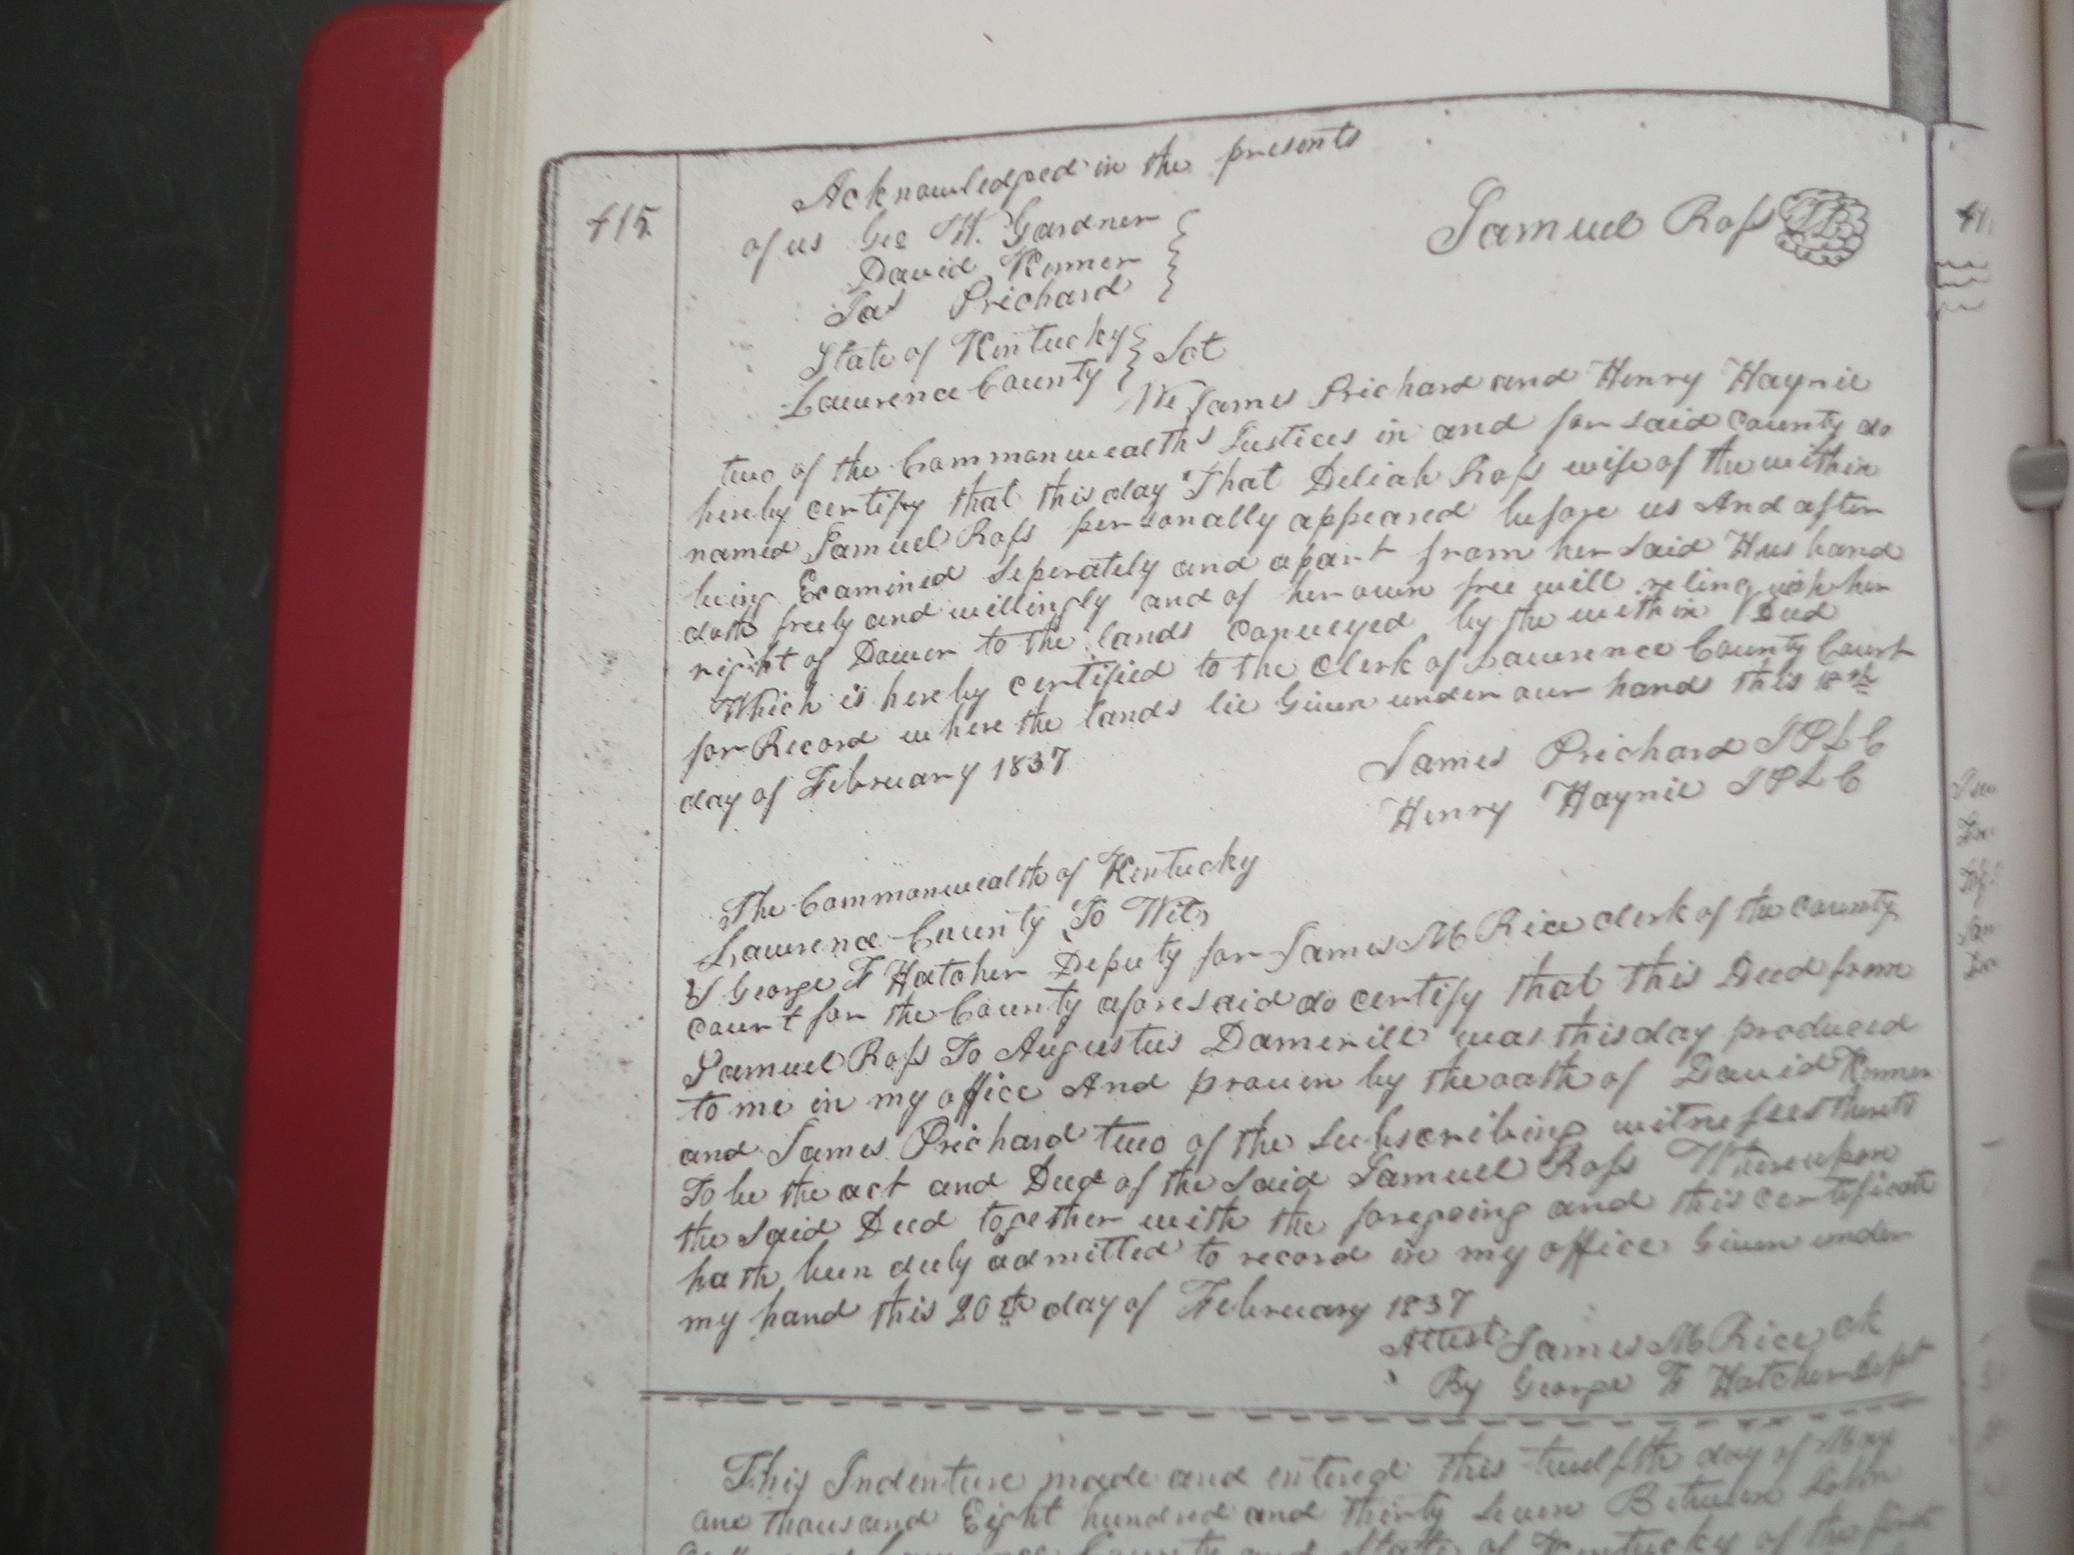 Acknowledged in the presents
415
of us Geo W. Gardner
Samuel Ross
David Kinner
Jas Prichard
State of Kentucky
Lawrence County } Sct
We James Prichard and Henry Haynie
two of the Commonwealths Justices in and for said County do
hereby certify that this day That Deliah Ross wife of the within
named Samuel Ross personally appeared before us And after
being Examined Seperately and apart from her said Husband
doth freely and willingly and of her own free will relinquish her
right of Dower to the lands conveyed by the within Deed
Which is hereby certified to the Clerk of Lawrence County Court
for Record where the lands lie Given under our hands this 18th
day of February 1837
James Prichard JPLC
Henry Haynie JPLC
The Commonwealth of Kentucky
Lawrence County To Wit
I George F Hatcher Deputy for James M Rice clerk of the county
court for the County aforesaid do certify that this Deed from
Samuel Ross To Augustus Damerill was this day produced
to me in my office And proven by the oath of David Kinner
and James Prichard two of the Subscribing witnesses thereto
To be the act and Deed of the said Samuel Ross Whereupon
the said Deed together with the foregoing and this certificate
hath been duly admitted to record in my office Given under
my hand this 20th day of February 1837
Attest James M Rice clk
By George F Hatcher Dept
This Indenture made and entered this twelfth day of May
one thousand Eight hundred and thirty seven Between John
County and State of Kentucky of the first